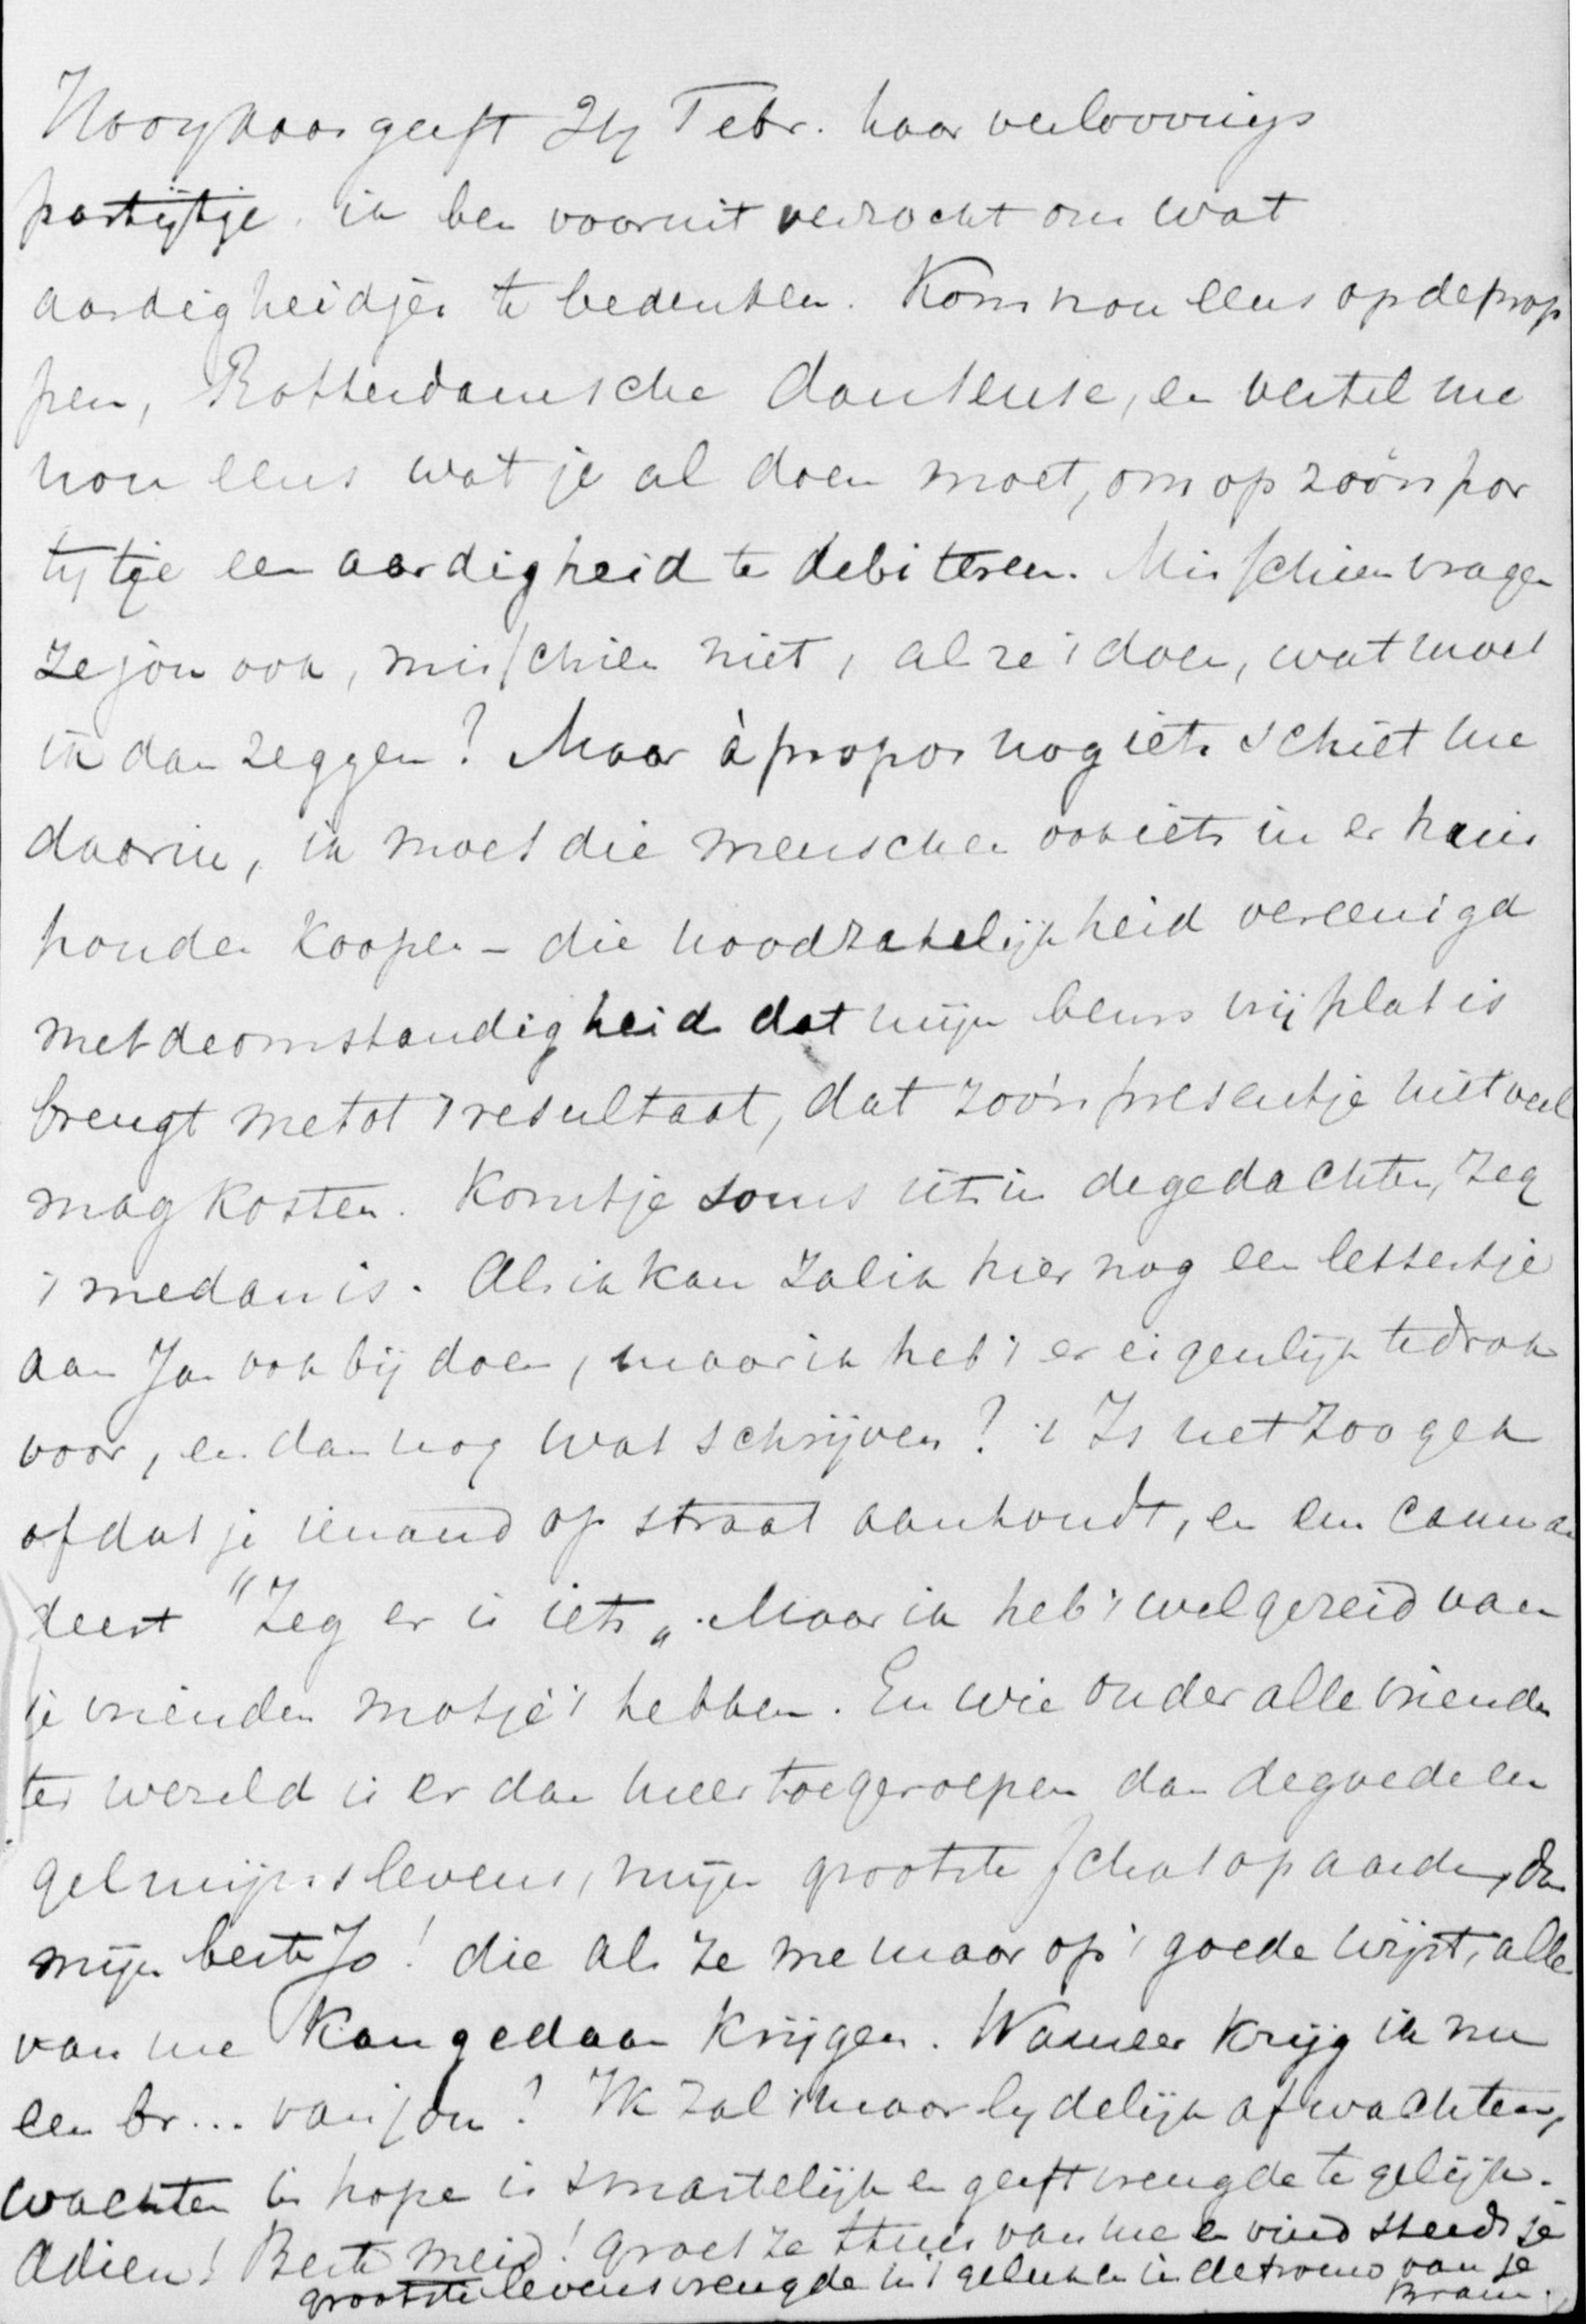 geeft 24 Febr. haar verloovings
partijtje. ik ben vooruit verzocht om wat
aardigheidjes te bedenken. Kom nou eens op de prop
pen, Rotterdamsche danseuse, en vertel me
nou eens wat je al doen moet, om op zoo'n par
tytje een aardigheid te debiteren. Misschien vragen
ze jou ook, misschien niet, al ze 't doen, wat moet
ik dan zeggen? Maar à propos nog iets schiet me
daar in, ik moet die menschen ook iets in er huis
houden koopen - die noodzakelijkheid vereenigd
met de omstandigheid dat mijn beurs vrij plat is
brengt me tot 't resultaat, dat zoo'n presentje niet veel
mag kosten. Komt je soms iets in de gedachten, zeg
't me dan is. Als ik kan zal ik hier nog een lettertje
aan Ja ook bij doen, maar ik heb 't er eigenlijk te drok
voor, en dan nog wat schrijven? 't Is net zoo gek
of dat je iemand op straat aanhoudt, en een comman
deert "Zeg er is iets„. Maar ik heb 't wel gezeid van
je vrienden mot je 't hebben. En wie onder alle vrienden
ter wereld is er dan meer toegeroepen dan de goede en
gel mijns levens, mijn grootste schat op aarde, dan
mijn beste Jo! die als ze me maar op 't goede wijst, alles
van me kan gedaan krijgen. Wanneer krijg ik nu
een br... van jou? Ik zal 't maar lydelijk afwachten,
wachten in hope is smartelijk en geeft vreugde te gelijk.
Adieu! Beste meid! groet ze thuis van me en vind steeds je
grootste levensvreugde in 't geluk en in de trouw van je
Bram.